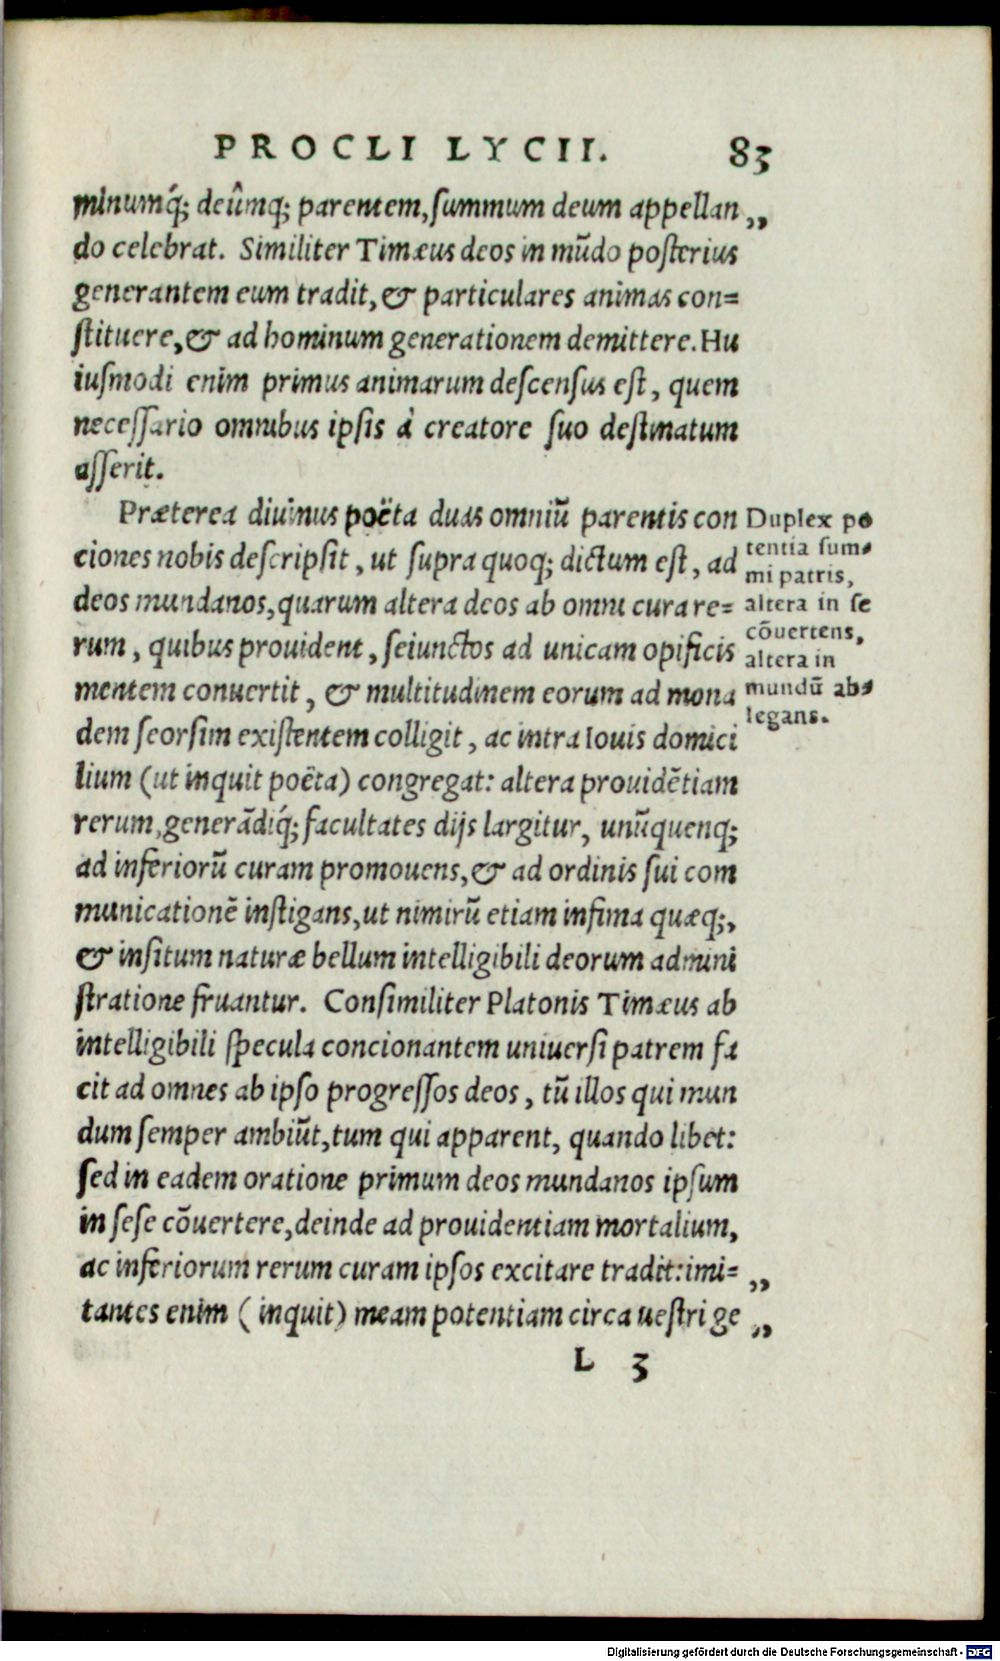 PROCLI LYCII. 83
minumq́; deûmq; parentem, ſummum deum appellan „
do celebrat. Similiter Timæus deos in mūdo poſterius
generantem eum tradit, & particulares animas con=
ſtituere, & ad hominum generationem demittere. Hu
iuſmodi enim primus animarum deſcenſus eſt, quem
neceſſario omnibus ipſis à creatore ſuo deſtinatum
aſſerit.
Præterea diuinus poëta duas omniū parentis con
ciones nobis deſcripſit, ut ſupra quoq; dictum eſt, ad
deos mundanos, quarum altera deos ab omni cura re=
rum, quibus prouident, ſeiunctos ad unicam opificis
mentem conuertit, & multitudinem eorum ad mona
dem ſeorſim exiſtentem colligit, ac intra Iouis domici
lium (ut inquit poëta) congregat: altera prouidētiam
rerum, generādiq́; facultates dijs largitur, unūquenq;
ad inferiorū curam promouens, & ad ordinis ſui com
municationē inſtigans, ut nimirū etiam infima quæq;,
& inſitum naturæ bellum intelligibili deorum admini
ſtratione fruantur. Conſimiliter Platonis Timæus ab
intelligibili ſpecula concionantem uniuerſi patrem fa
cit ad omnes ab ipſo progreſſos deos, tū illos qui mun
dum ſemper ambiūt, tum qui apparent, quando libet:
ſed in eadem oratione primum deos mundanos ipſum
in ſeſe cōuertere, deinde ad prouidentiam mortalium,
ac inferiorum rerum curam ipſos excitare tradit: imi= „
tantes enim (inquit) meam potentiam circa ueſtri ge „
L 3
Duplex po
tentia ſum=
mi patris,
altera in ſe
cōuertens,
altera in
mundū ab=
legans.
Digitalisierung gefördert durch die Deutsche Forschungsgemeinschaft - DFG